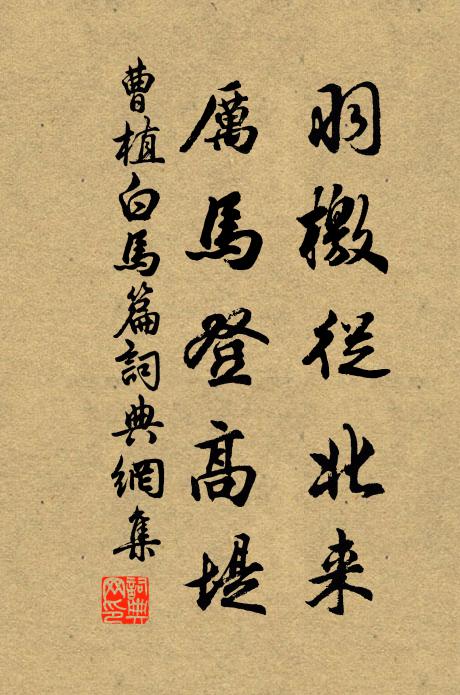 羽檄從北来
厲馬登高堤
曹植白馬篇詞典網集
詞典网印